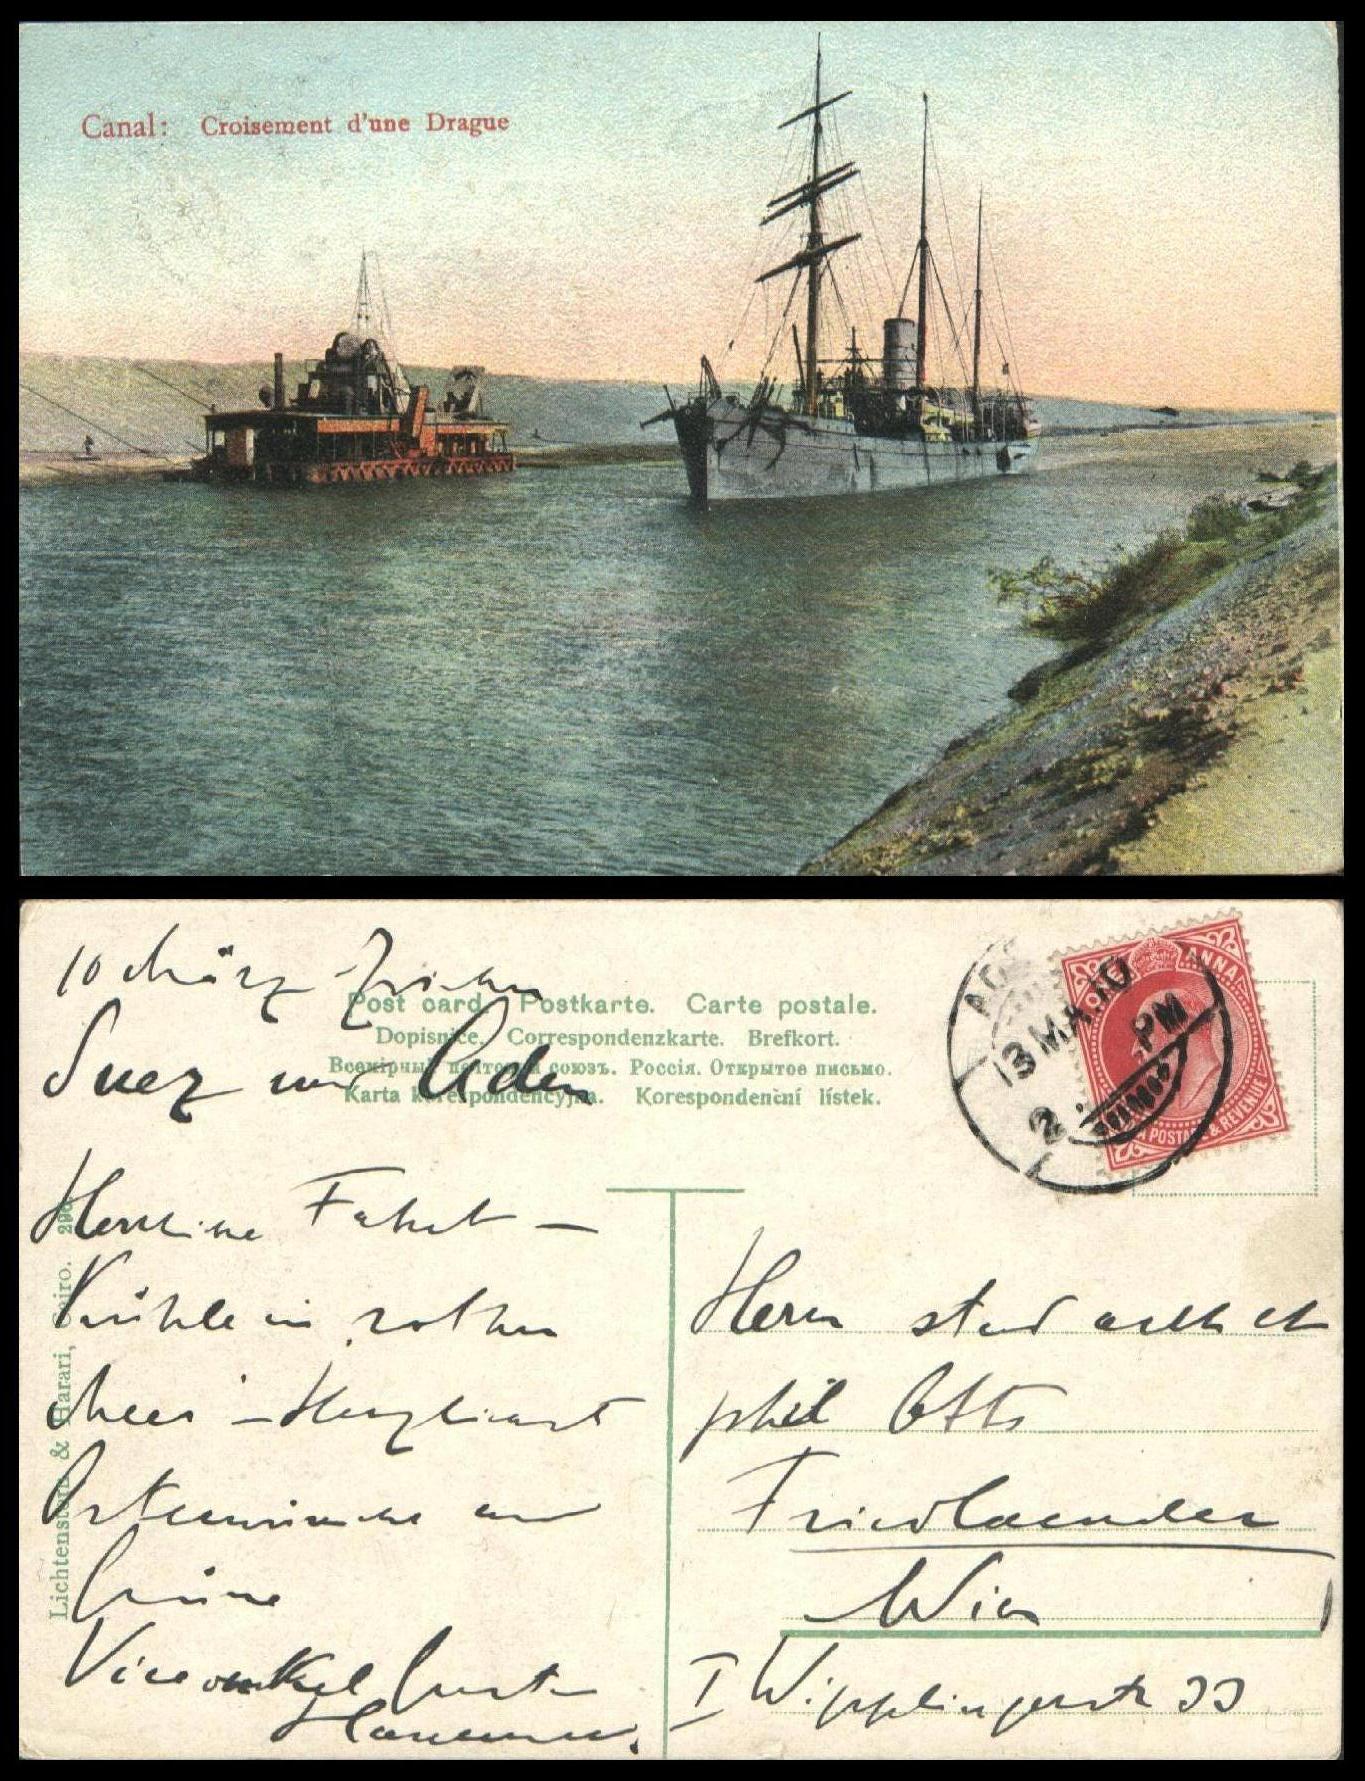 Canal: Croisement d'une Drague
10 März Zwischen
Suez und Aden
Post card. Postkarte. Carte postale.
Dopisnice. Correspondenzkarte. Brefkort.
Всемірный почтовый союзъ. Россія. Открытое письмо.
Karta korespondencyjna. Korespondenční lístek.
13 MA.10
2 PM
ANNA
POSTAGE & REVENUE
Herrliche Fahrt –
Kühle im rothen
Meer – Herzlichst
Osterwünsche und
Grüsse
Viceonkel Gustav
Lichtenstern & Harari, Cairo.
Herrn stud
phil Otto
Friedlaender
Wien
I Wipplingerstr 33